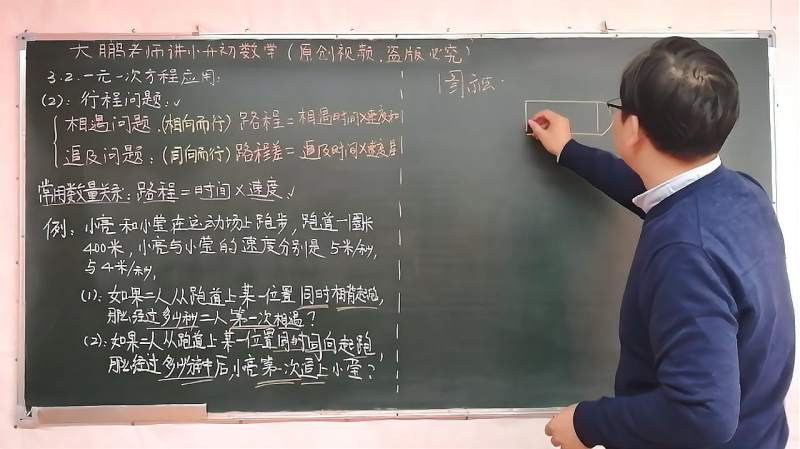 大鹏老师讲小升初数学(原创视频.盗版必究)
3.2.一元一次方程应用:
(2):行程问题:
相遇问题.(相向而行)路程=相遇时间×速度和
追及问题:(同向而行)路程差=追及时间×速度差
常用数量关系:路程=时间×速度.
例:小亮和小莹在运动场上跑步,跑道一圈长
400米,小亮与小莹的速度分别是5米/秒,
与4米/秒,
(1):如果二人从跑道上某一位置同时相背起跑,
那么经过多少秒二人第一次相遇?
(2):如果二人从跑道上某一位置同时同向起跑,
那么经过多少分钟后,小亮第一次追上小莹?
图示法: